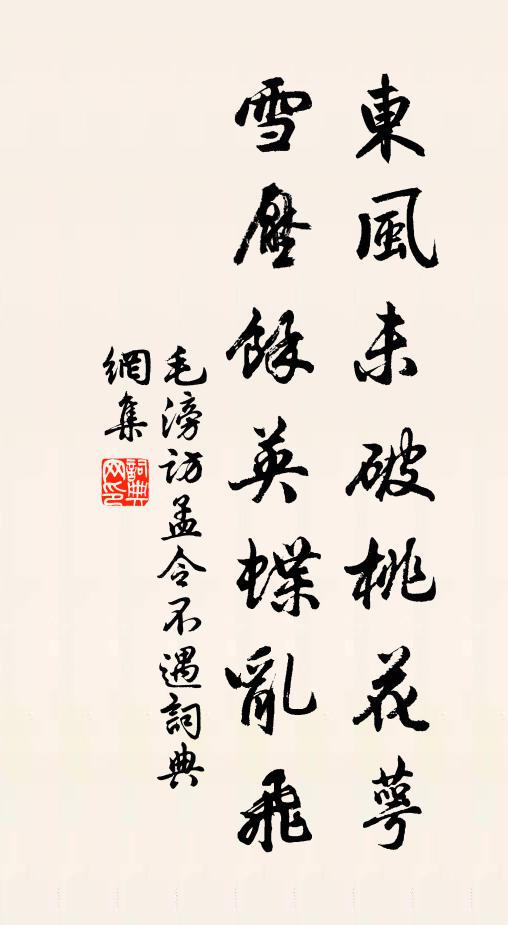 東風未破桃花萼
雪壓餘英蝶亂飛
毛滂訪孟令不遇詞典
網集
詞典網印